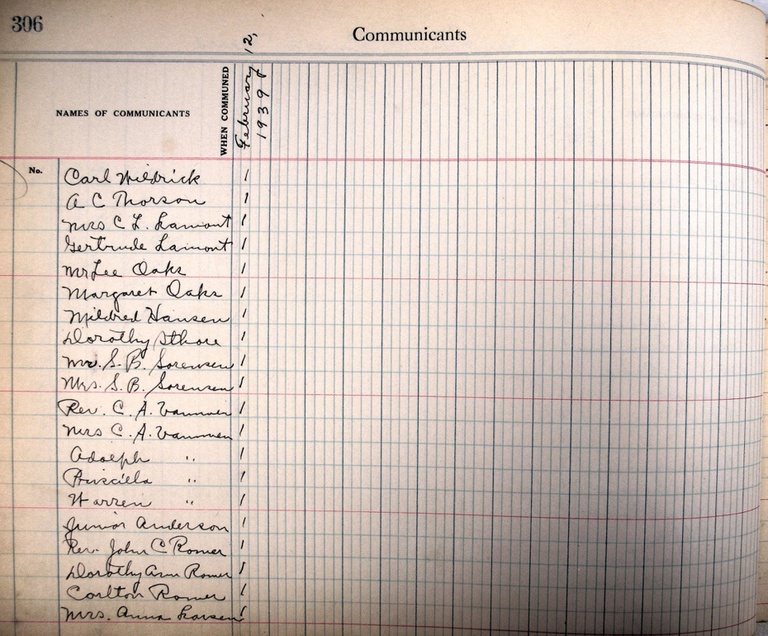 306
Communicants
NAMES OF COMMUNICANTS
WHEN COMMUNED
February 12,
1939
No.
Carl Wildrick 1
A C Thorson 1
Mrs C L. Lamont 1
Gertrude Lamont 1
Mr Lee Oaks 1
Margaret Oaks 1
Mildred Hansen 1
Dorothy 1
Mr. S. B. Sorensen 1
Mrs. S. B. Sorensen 1
Rev. C. A. 1
Mrs C. A. 1
Adolph " 1
Priscilla " 1
Warren " 1
Junior Anderson 1
Rev. John C Romer 1
Dorothy Ann Romer 1
Carlton Romer 1
Mrs. Anna Larsen 1